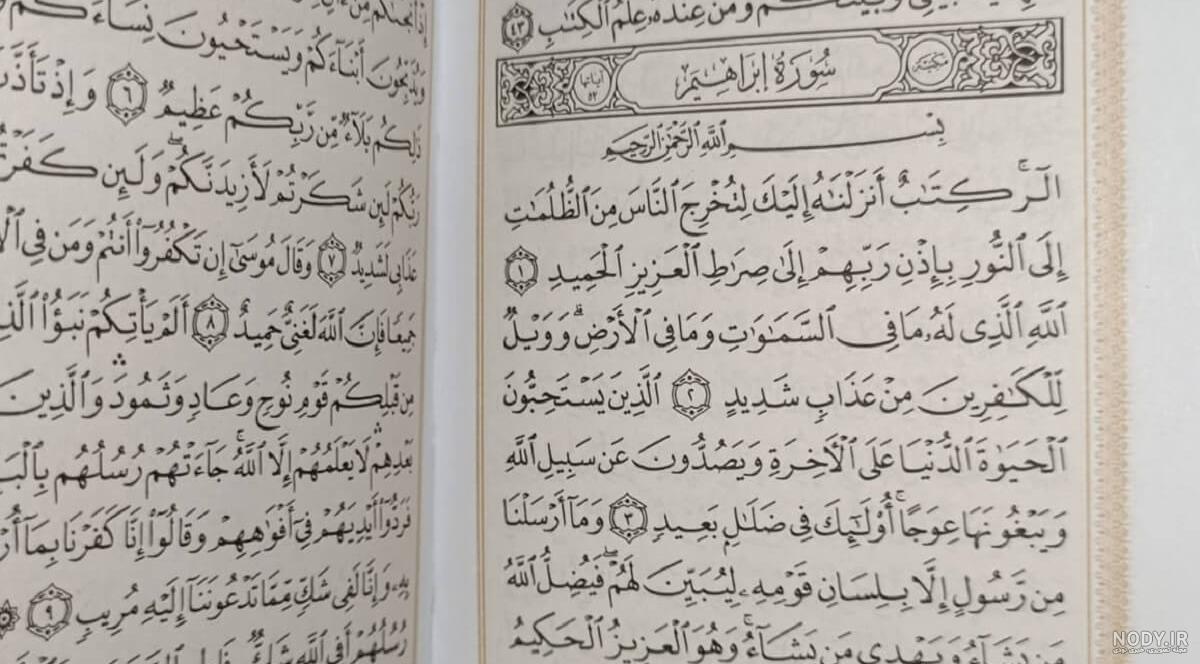 وَبَيْنَكُمْ وَمَنْ عِندَهُۥ عِلْمُ ٱلْكِتَٰبِ ٤٣
مكية سُورَةُ إِبْرَاهِيمَ آياتها ٥٢
بِسْمِ ٱللَّهِ ٱلرَّحْمَٰنِ ٱلرَّحِيمِ
الٓر ۚ كِتَٰبٌ أَنزَلْنَٰهُ إِلَيْكَ لِتُخْرِجَ ٱلنَّاسَ مِنَ ٱلظُّلُمَٰتِ
إِلَى ٱلنُّورِ بِإِذْنِ رَبِّهِمْ إِلَىٰ صِرَٰطِ ٱلْعَزِيزِ ٱلْحَمِيدِ ١
ٱللَّهِ ٱلَّذِى لَهُۥ مَا فِى ٱلسَّمَٰوَٰتِ وَمَا فِى ٱلْأَرْضِ ۗ وَوَيْلٌ
لِّلْكَٰفِرِينَ مِنْ عَذَابٍ شَدِيدٍ ٢ ٱلَّذِينَ يَسْتَحِبُّونَ
ٱلْحَيَوٰةَ ٱلدُّنْيَا عَلَى ٱلْءَاخِرَةِ وَيَصُدُّونَ عَن سَبِيلِ ٱللَّهِ
وَيَبْغُونَهَا عِوَجًا ۚ أُو۟لَٰٓئِكَ فِى ضَلَٰلٍۭ بَعِيدٍ ٣ وَمَآ أَرْسَلْنَا
مِن رَّسُولٍ إِلَّا بِلِسَانِ قَوْمِهِۦ لِيُبَيِّنَ لَهُمْ ۖ فَيُضِلُّ ٱللَّهُ
مَن يَشَآءُ وَيَهْدِى مَن يَشَآءُ ۚ وَهُوَ ٱلْعَزِيزُ ٱلْحَكِيمُ
إِذْ أَنجَىٰكُم مِّنْ
وَيُذَبِّحُونَ أَبْنَآءَكُمْ وَيَسْتَحْيُونَ نِسَآءَكُمْ
ذَٰلِكُم بَلَآءٌ مِّن رَّبِّكُمْ عَظِيمٌ ٦ وَإِذْ تَأَذَّنَ
رَبُّكُمْ لَئِن شَكَرْتُمْ لَأَزِيدَنَّكُمْ ۖ وَلَئِن كَفَرْتُمْ
عَذَابِى لَشَدِيدٌ ٧ وَقَالَ مُوسَىٰٓ إِن تَكْفُرُوٓا۟ أَنتُمْ وَمَن فِى
جَمِيعًا فَإِنَّ ٱللَّهَ لَغَنِىٌّ حَمِيدٌ ٨ أَلَمْ يَأْتِكُمْ نَبَؤُا۟
مِن قَبْلِكُمْ قَوْمِ نُوحٍ وَعَادٍ وَثَمُودَ ۛ وَٱلَّذِينَ
بَعْدِهِمْ ۛ لَا يَعْلَمُهُمْ إِلَّا ٱللَّهُ ۚ جَآءَتْهُمْ رُسُلُهُم
فَرَدُّوٓا۟ أَيْدِيَهُمْ فِىٓ أَفْوَٰهِهِمْ وَقَالُوٓا۟ إِنَّا كَفَرْنَا بِمَآ
بِهِۦ وَإِنَّا لَفِى شَكٍّ مِّمَّا تَدْعُونَنَآ إِلَيْهِ مُرِيبٍ ٩
رُسُلُهُمْ أَفِى ٱللَّهِ شَكٌّ
NODY.IR